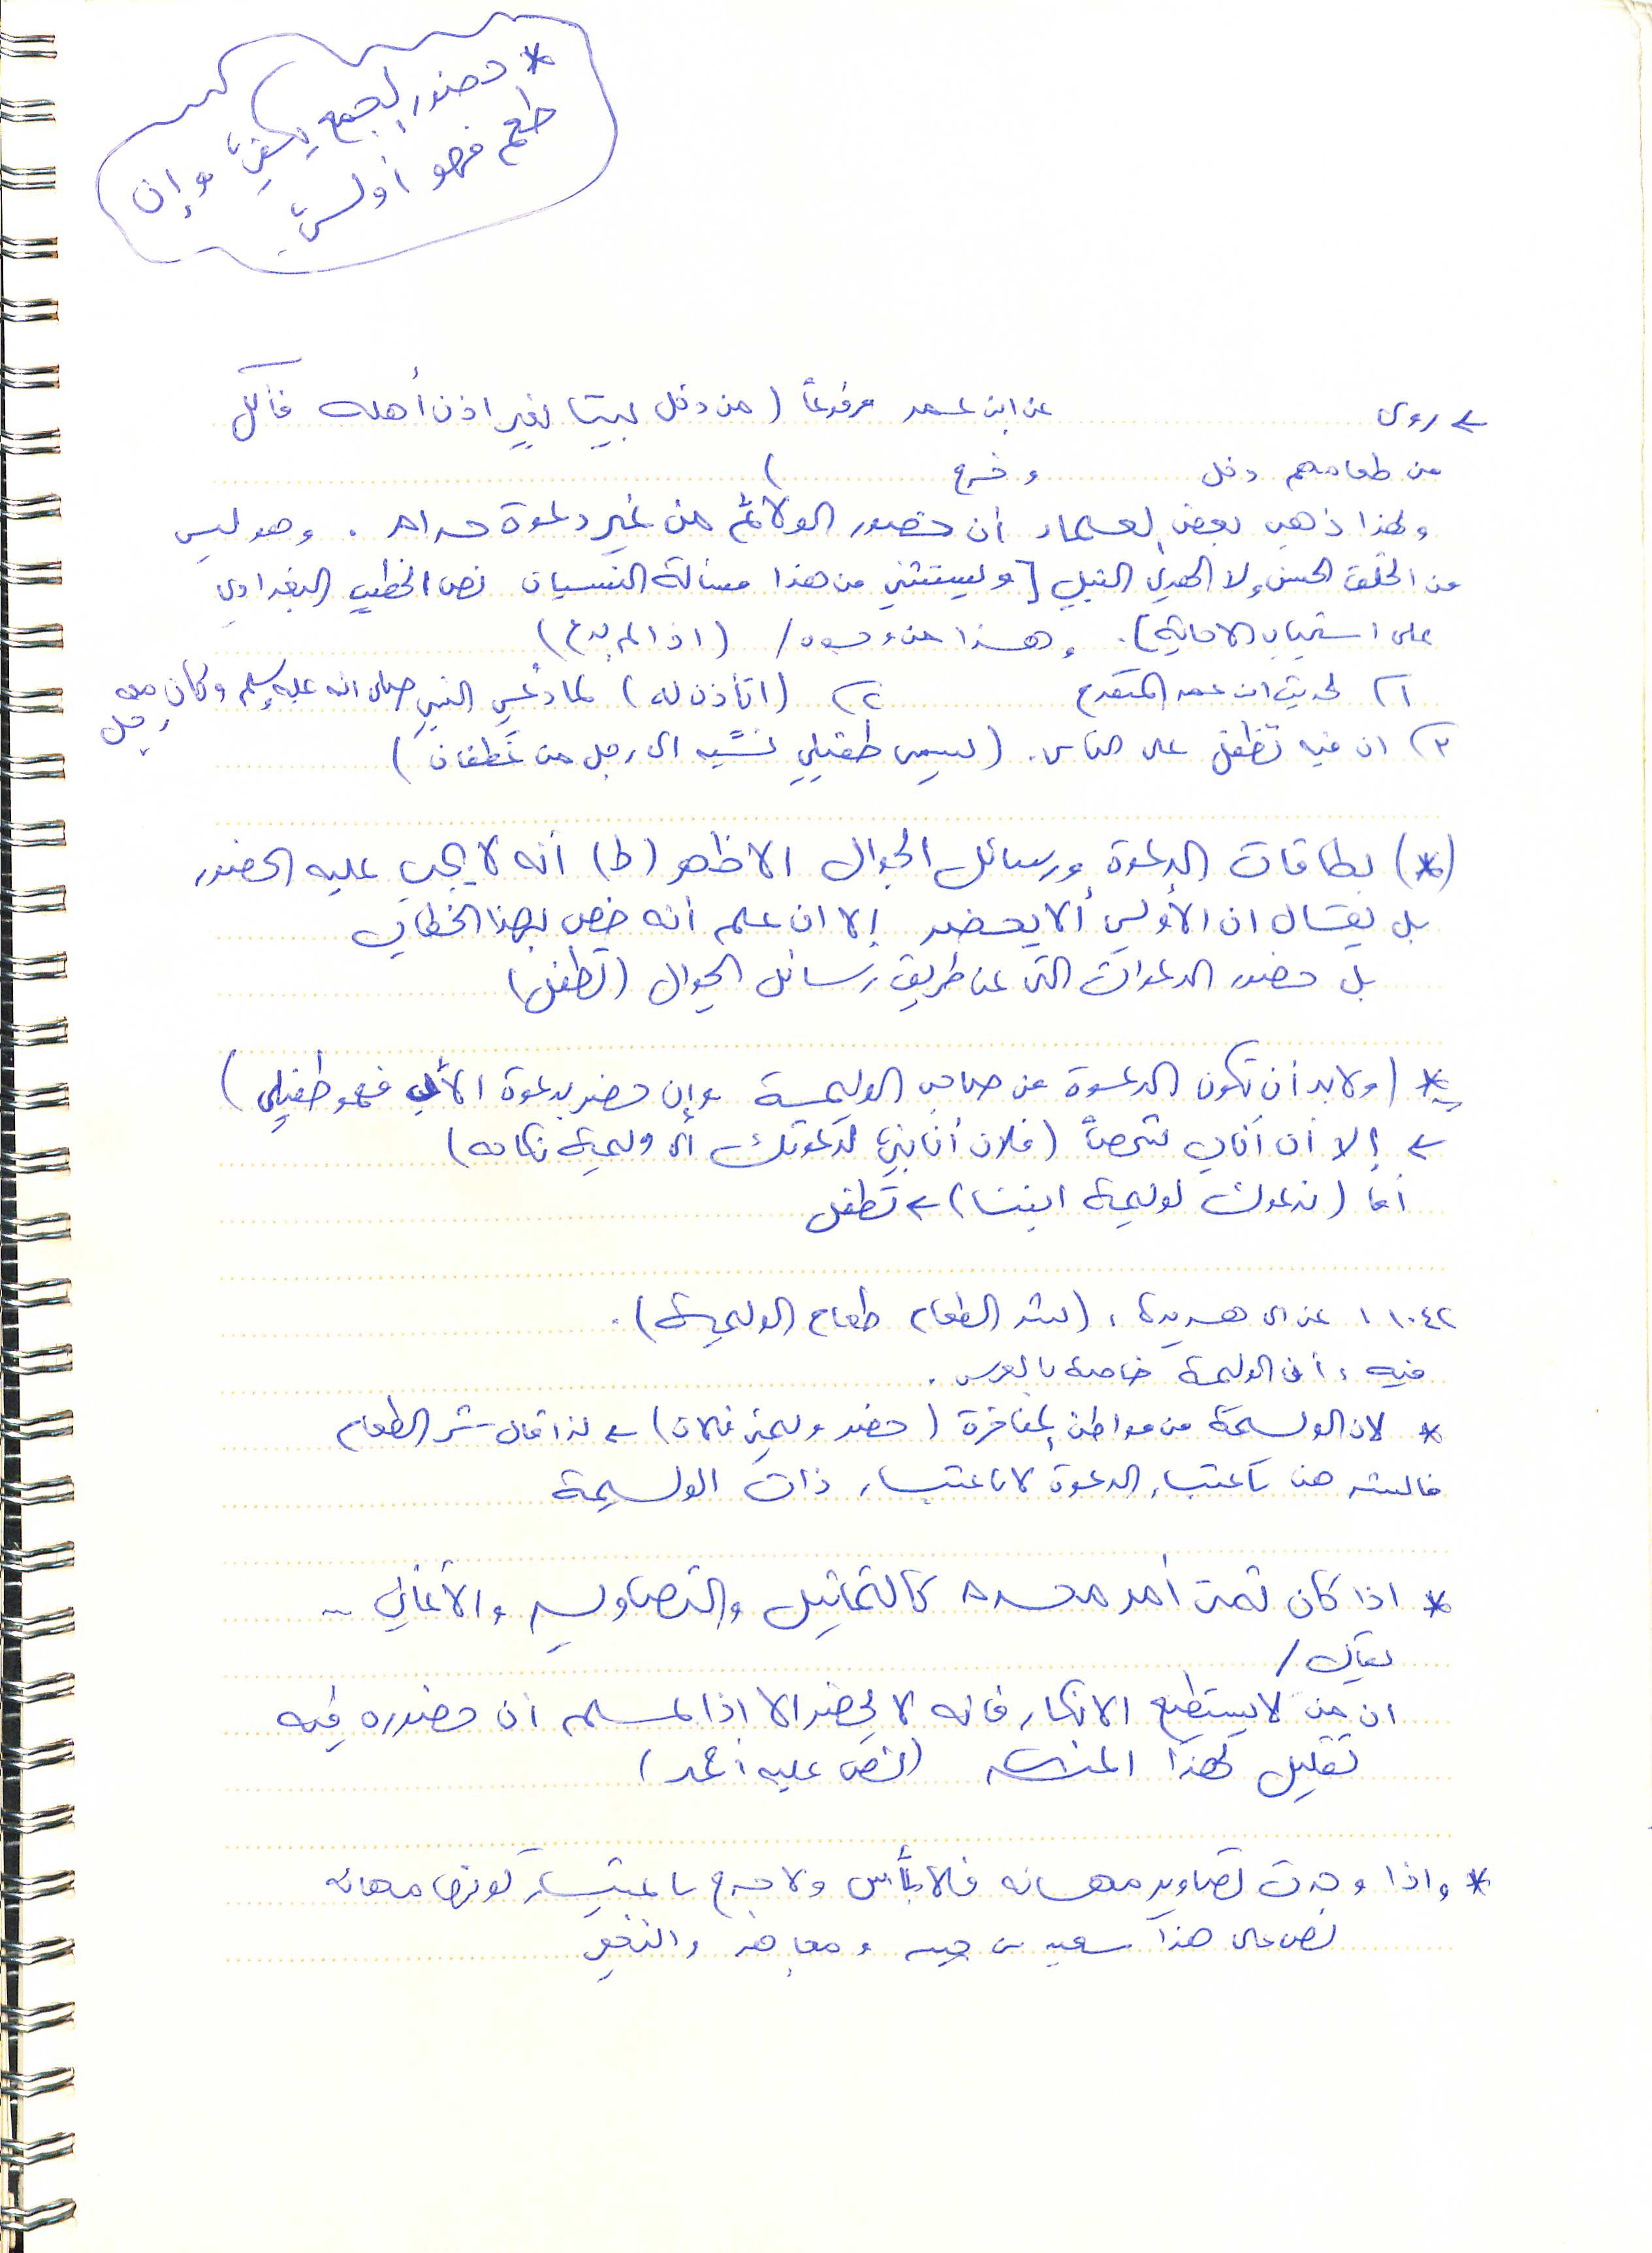 * حضور الجمع يكفي وإن
طعم فهو أولى
← روى عن ابن عمر مرفوعاً (من دخل بيتا بغير اذن أهله فأكل
من طعامهم دخل وخرج )
ولهذا ذهب بعض العلماء أن حضور الولائم من غير دعوة حرام . وهو ليس
من الخلق الحسن ولا الهدي النبيل [ويستثنى من هذا مسألة النسيان نص الخطيب البغدادي
على استحباب الاجابة]. وهذا من وجوه/ (اذا لم يدع)
١) لحديث ابن عمر المتقدم ٢) (اتأذن له) لما دُعي النبي صلى الله عليه وسلم وكان معه
رجل
٣) ان فيه تطفل على الناس. (يسمى طفيلي نسبه الى رجل من غطفان)
(*) بطاقات الدعوة ورسائل الجوال الاظهر (ط) أنه لا يجب عليه الحضور
بل يقال ان الأولى ألا يحضر إلا ان علم أنه خص بهذا الخطاب
بل حضور الدعوات التى عن طريق رسائل الجوال (تطفل)
* (ولابد أن تكون الدعوة من صاحب الوليمة وإن حضر بدعوة الأب فهو طفيلي)
← إلا أن أناب شخصاً (فلان أنابني لدعوتك الى وليمة نكاحه)
أما (ندعوك لوليمة ابننا) ← تطفل
١١٠٤٢ عن ابى هريرة : (شر الطعام طعام الوليمة).
فيه : أن الوليمة خاصة بالعرس .
* لان الوليمة من مواطن المفاخرة (حضر وليمتي فلان) ← لذا قال شر الطعام
فالشر هنا باعتبار الدعوة لا باعتبار ذات الوليمة
* اذا كان ثمت أمر محرم كالتماثيل والتصاوير والأغاني ..
يقال /
ان من لا يستطيع الانكار فانه لا يحضر الا اذا علم أن حضوره فيه
تقليل لهذا المنكر (نص عليه أحمد)
* واذا وجدت تصاوير مهانه فلا بأس ولا حرج باعتبار كونها مهانه
نص على هذا سعيد بن جبير و مجاهد والنخعي